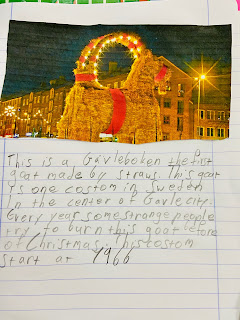 This is a Gävleboken the first
goat made by straws. This goat
is one costom in Sweden
in the center of Gavle city.
Every year some strange people
try to burn this goat before
of Christmas. This costom
start at 1966